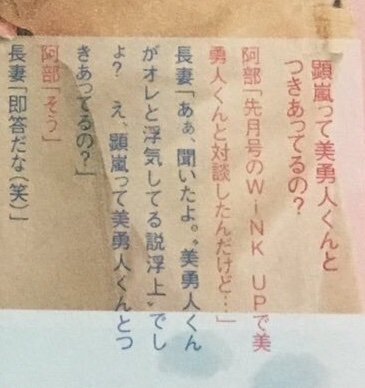 顕嵐って美勇人くんと
つきあってるの？
阿部「先月号のＷｉＮＫ ＵＰで美
勇人くんと対談したんだけど…」
長妻「あぁ、聞いたよ。〝美勇人くん
がオレと浮気してる説浮上〟でし
ょ？　え、顕嵐って美勇人くんとつ
きあってるの？」
阿部「そう」
長妻「即答だな（笑）」